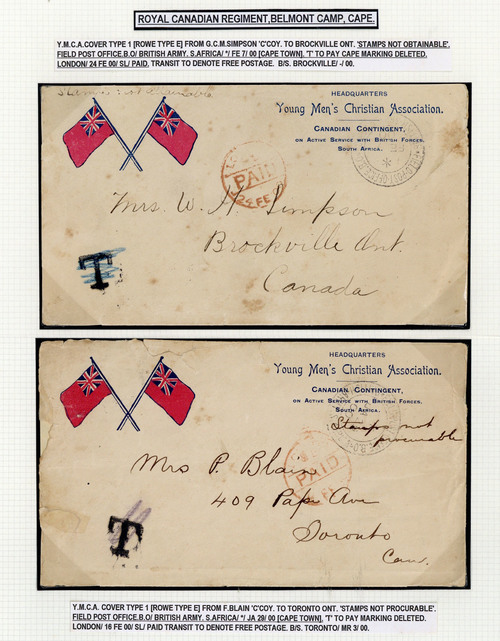 ROYAL CANADIAN REGIMENT,BELMONT CAMP, CAPE.
Y.M.C.A.COVER TYPE 1 [ROWE TYPE E] FROM G.C.M.SIMPSON 'C'COY. TO BROCKVILLE ONT. 'STAMPS NOT OBTAINABLE',
FIELD POST OFFICE.B.O/ BRITISH ARMY. S.AFRICA/ */ FE 7/ 00 [CAPE TOWN]. 'T' TO PAY CAPE MARKING DELETED.
LONDON/ 24 FE 00/ SL/ PAID, TRANSIT TO DENOTE FREE POSTAGE. B/S. BROCKVILLE/ -/ 00.
Stamps not
HEADQUARTERS
Young Men's Christian Association.
CANADIAN CONTINGENT,
ON ACTIVE SERVICE WITH BRITISH FORCES,
SOUTH AFRICA.
PAID
24 FE
Mrs. W. H. Simpson
Brockville Ont.
Canada
T
HEADQUARTERS
Young Men's Christian Association.
CANADIAN CONTINGENT,
ON ACTIVE SERVICE WITH BRITISH FORCES,
SOUTH AFRICA.
Stamps not
procurable
PAID
Mrs P. Blain
409 Pape Ave
Toronto
Can.
T
Y.M.C.A. COVER TYPE 1 [ROWE TYPE E] FROM F.BLAIN 'C'COY. TO TORONTO ONT. 'STAMPS NOT PROCURABLE'.
FIELD POST OFFICE.B.O/ BRITISH ARMY. S.AFRICA/ */ JA 29/ 00 [CAPE TOWN], 'T' TO PAY MARKING DELETED.
LONDON/ 16 FE 00/ SL/ PAID TRANSIT TO DENOTE FREE POSTAGE. B/S. TORONTO/ MR 3/ 00.